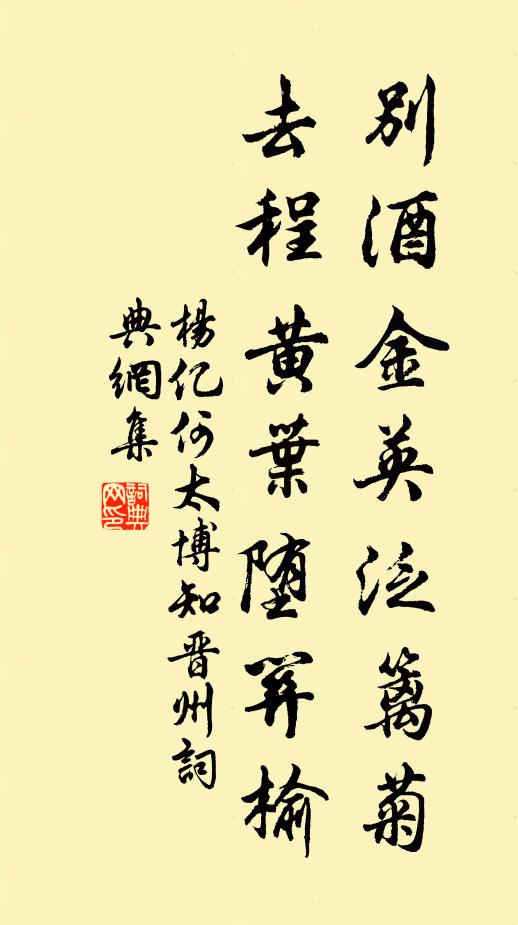 別酒金英泛籬菊
去程黃葉墮關榆
楊亿何太博知晉州詞
典網集
詞典網印